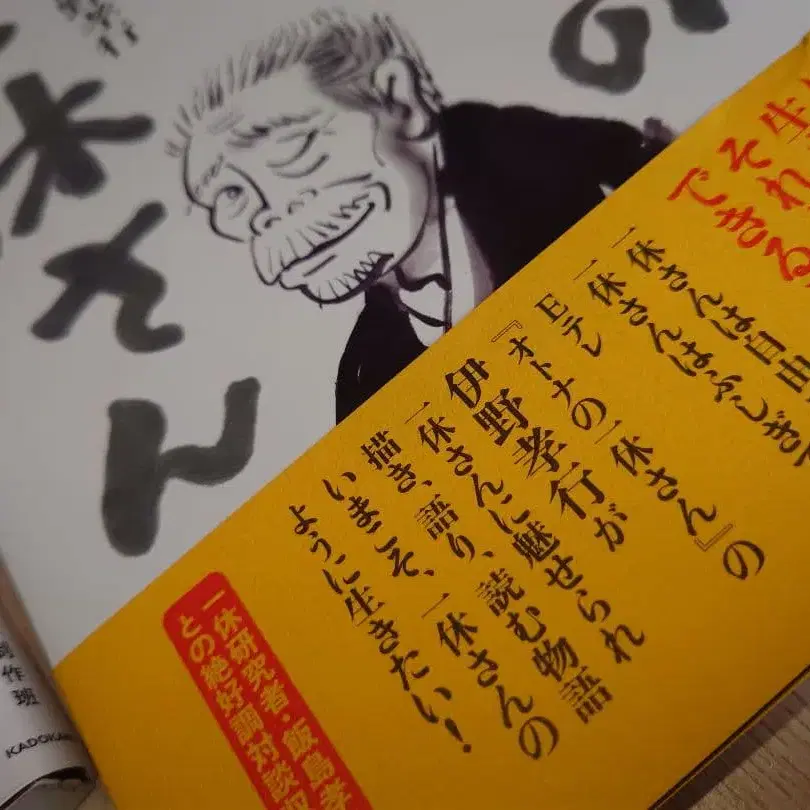 休さん
の
生
それ
できる
一休さんは自由
一休さんはふしぎ
Eテレ
『オトナの一休さん』の
伊野孝行が
一休さんに魅せられ
描き、語り、読む物語
いまこそ、一休さんの
ように生きたい！
一休研究者・飯島孝
との絶好調対談
作班
KADOKA